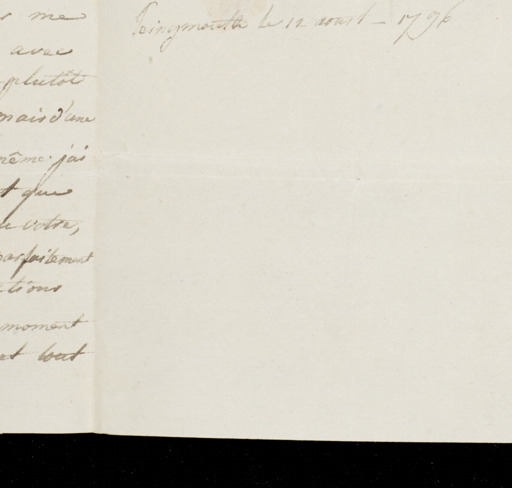 me
avec
plutôt
mais d'une
même. j'ai
que
votre,
parfaitement
moment
tout
Teingmouth le 12 aoust - 1796